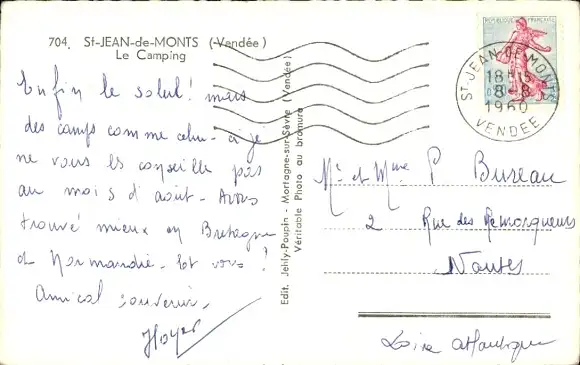 704. St-JEAN-de-MONTS (Vendée)
Le Camping
Enfin le soleil! mais
des camps comme celui-ci je
ne vous les conseille pas
au mois d'août - Avons
trouvé mieux en Bretagne
et Normandie. Et vous?
Amical souvenir.
Edit. Jehly-Poupin - Mortagne-sur-Sèvre (Vendée)
Véritable Photo au bromure
REPUBLIQUE FRANÇAISE
ST-JEAN-DE-MONTS
18H15
8-8
1960
VENDEE
Mr et Mme P Bureau
2 Rue des Remorqueurs
Nantes
Loire Atlantique